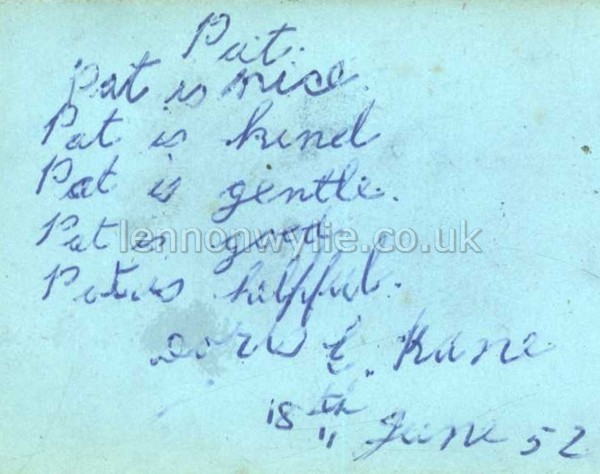 Pat.
Pat is nice.
Pat is kind
Pat is gentle.
Pat is good
lennonwylie.co.uk
Pat is helpful.
Doris E. Kane
18th June 52